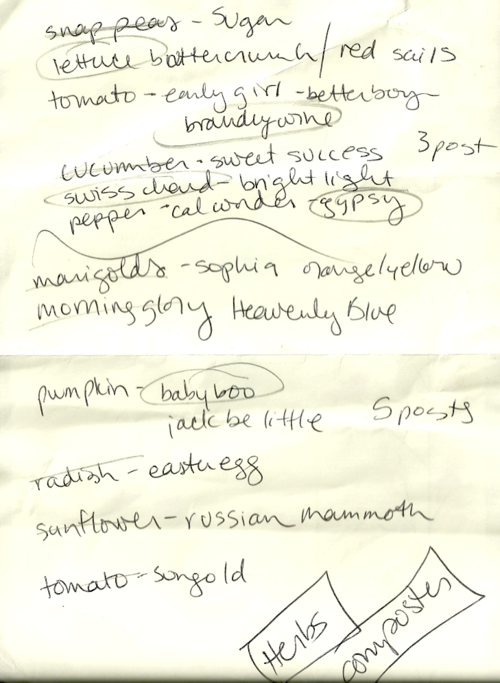 snap peas - Sugar
lettuce buttercrunch / red sails
tomato - early girl - betterboy
brandywine
cucumber - sweet success 3 post
swiss chard - bright light
pepper - cal wonder - gypsy
marigolds - sophia orange/yellow
morning glory Heavenly Blue
pumpkin - baby boo
jack be little 5 posts
radish - easter egg
sunflower - russian mammoth
tomato - sungold
Herbs
composter